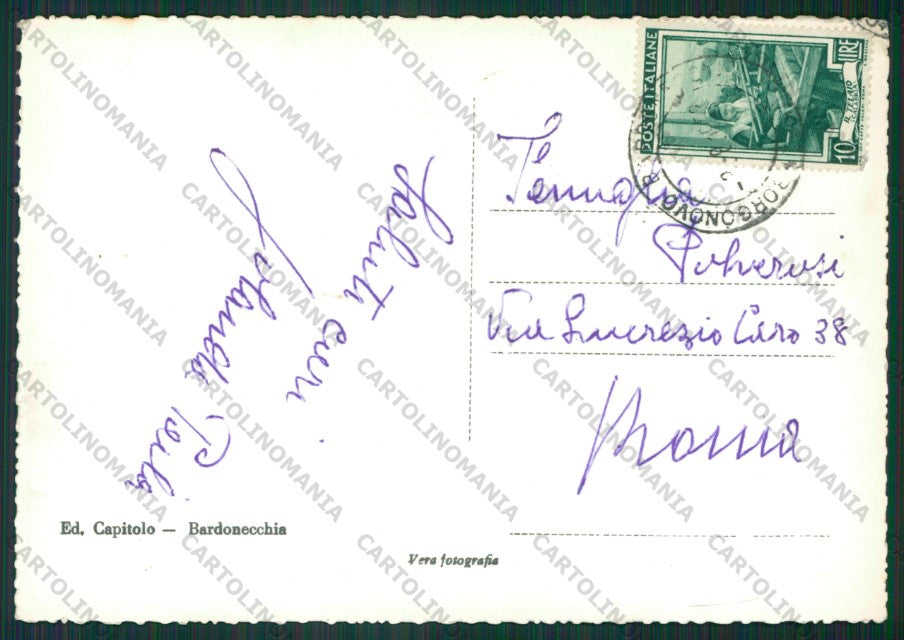 Saluti cari
POSTE ITALIANE
LIRE
10
BORGONOVO
Famiglia
Polverosi
Via Lucrezio Caro 38
Roma
Ed. Capitolo — Bardonecchia
Vera fotografia
CARTOLINOMANIA